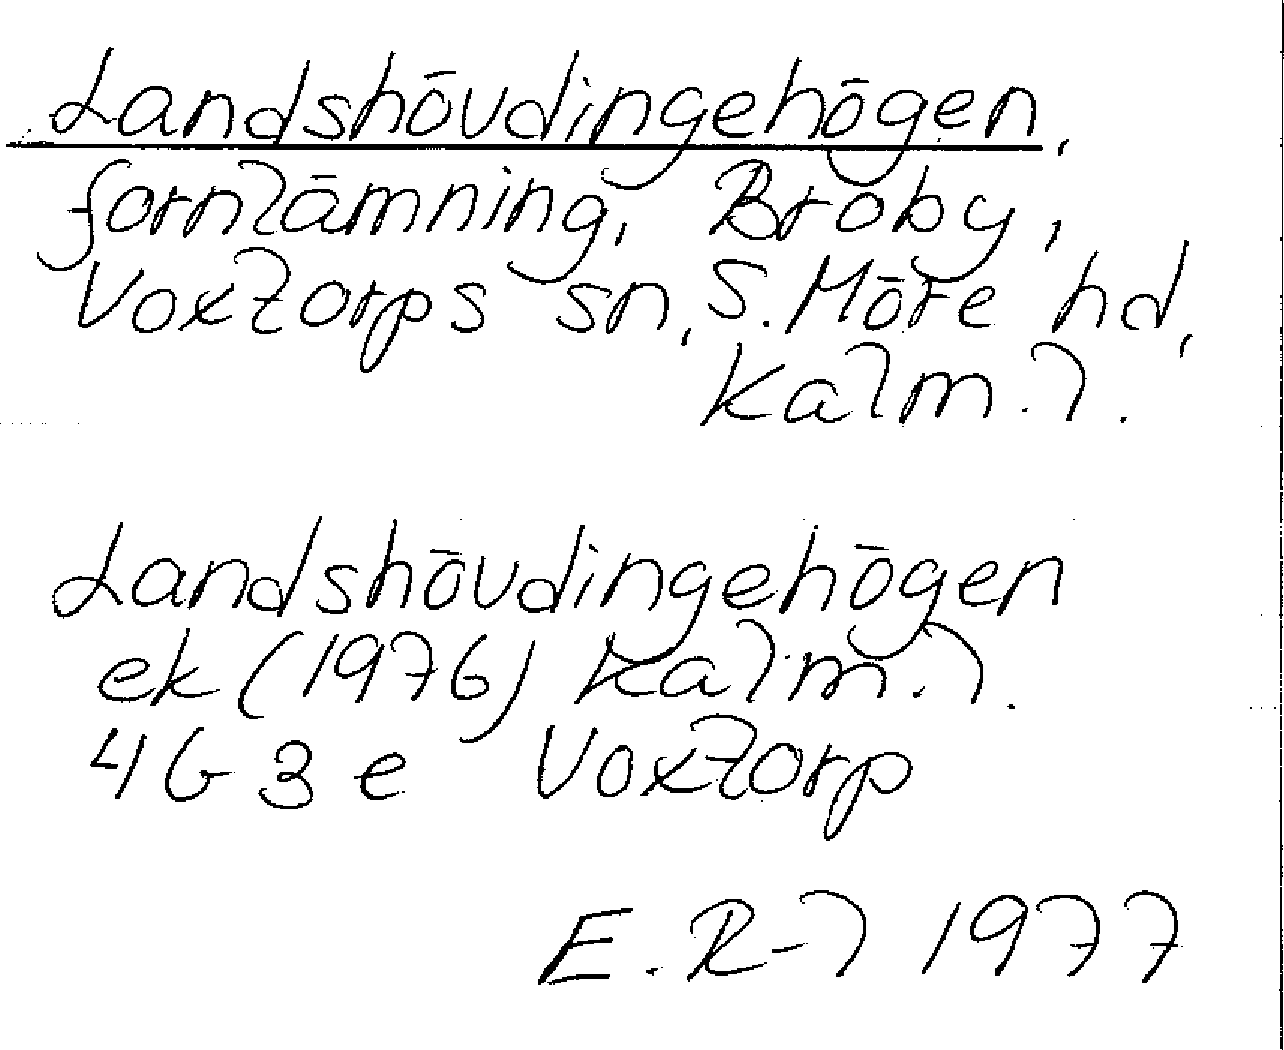 Landshövdingehögen,
fornlämning, Broby,
Voxtorps sn, S. Möre hd,
Kalm. l.
Landshövdingehögen
ek (1976) Kalm. l.
4G3e Voxtorp
E. R-l 1977